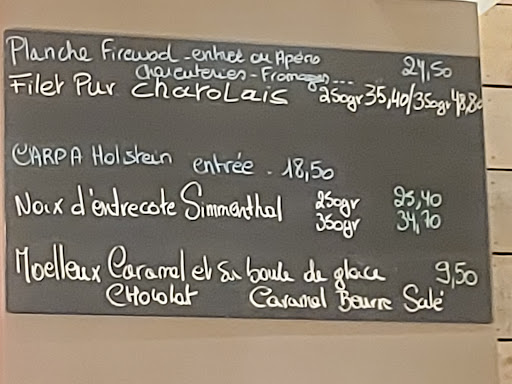 Planche Firewood - entrée ou Apéro
Charcuteries - Fromages... 24,50
Filet Pur Charolais 250gr 35,40/350gr 48,80
CARPA Holstein entrée - 18,50
Noix d'entrecote Simmenthal 250gr 25,40
350gr 34,70
Moelleux Caramel et sa boule de glace 9,50
CHocolat Caramel Beurre Salé